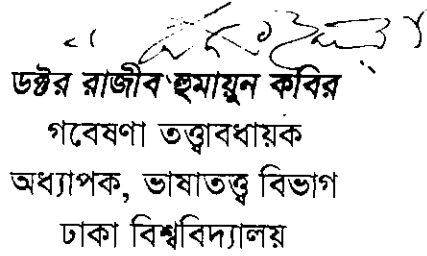 ডক্টর রাজীব হুমায়ুন কবির
গবেষণা তত্ত্বাবধায়ক
অধ্যাপক, ভাষাতত্ত্ব বিভাগ
ঢাকা বিশ্ববিদ্যালয়